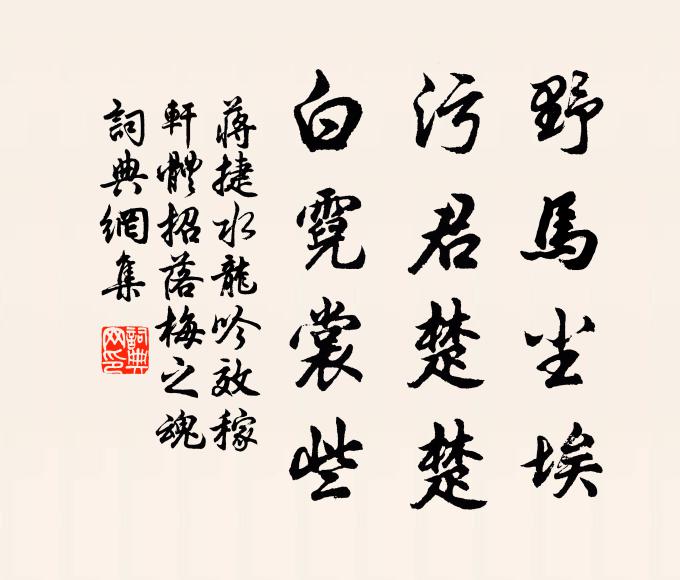 野馬尘埃
污君楚楚
白霓裳些
蔣捷水龍吟效稼
軒體招落梅之魂
詞典網集
詞典
网印